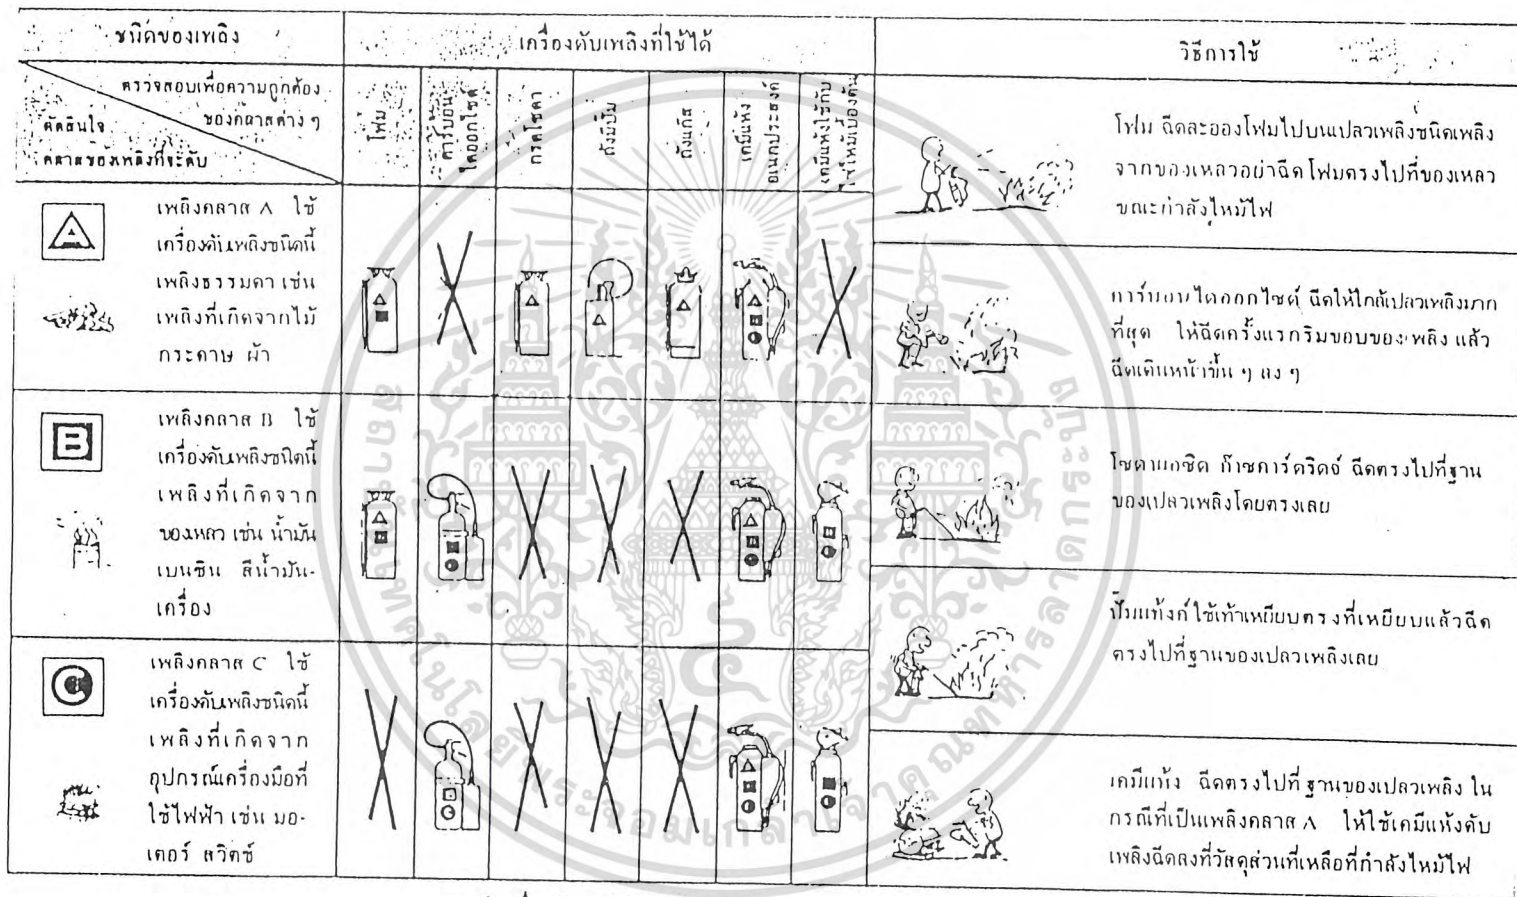 ชนิดของเพลิง
เครื่องดับเพลิงที่ใช้ได้
วิธีการใช้
ตรวจสอบเพื่อความถูกต้อง
ของคลาสต่าง ๆ
ตัดสินใจ
คลาสของเพลิงที่จะดับ
โฟม
คาร์บอน
ไดออกไซด์
กรดโซดา
ถังมีปั๊ม
ถังแก๊ส
เคมีแห้ง
อเนกประสงค์
เคมีแห้งใช้กับ
เพลิงคลาส A ใช้
เครื่องดับเพลิงชนิดนี้
เพลิงธรรมดา เช่น
เพลิงที่เกิดจากไม้
กระดาษ ผ้า
เพลิงคลาส B ใช้
เครื่องดับเพลิงชนิดนี้
เพลิงที่เกิดจาก
ของเหลว เช่น น้ำมัน
เบนซิน สีน้ำมัน-
เครื่อง
เพลิงคลาส C ใช้
เครื่องดับเพลิงชนิดนี้
เพลิงที่เกิดจาก
อุปกรณ์เครื่องมือที่
ใช้ไฟฟ้า เช่น มอ-
เตอร์ สวิตซ์
โฟม ฉีดละอองโฟมไปบนเปลวเพลิงชนิดเพลิง
จากของเหลวอย่าฉีดโฟมตรงไปที่ของเหลว
ขณะกำลังไหม้ไฟ
คาร์บอนไดออกไซด์ ฉีดให้ใกล้เปลวเพลิงมาก
ที่สุด ให้ฉีดครั้งแรกริมขอบของเพลิง แล้ว
ฉีดเดินหน้าขึ้น ๆ ลง ๆ
โซดาแอซิด ก๊าซการ์ดริดจ์ ฉีดตรงไปที่ฐาน
ของเปลวเพลิงโดยตรงเลย
ปั๊มแท้งก์ใช้เท้าเหยียบตรงที่เหยียบแล้วฉีด
ตรงไปที่ฐานของเปลวเพลิงเลย
เคมีแห้ง ฉีดตรงไปที่ฐานของเปลวเพลิง ใน
กรณีที่เป็นเพลิงคลาส A ให้ใช้เคมีแห้งดับ
เพลิงฉีดลงที่วัสดุส่วนที่เหลือที่กำลังไหม้ไฟ
สถาบันเทคโนโลยีพระจอมเกล้าเจ้าคุณทหารลาดกระบัง